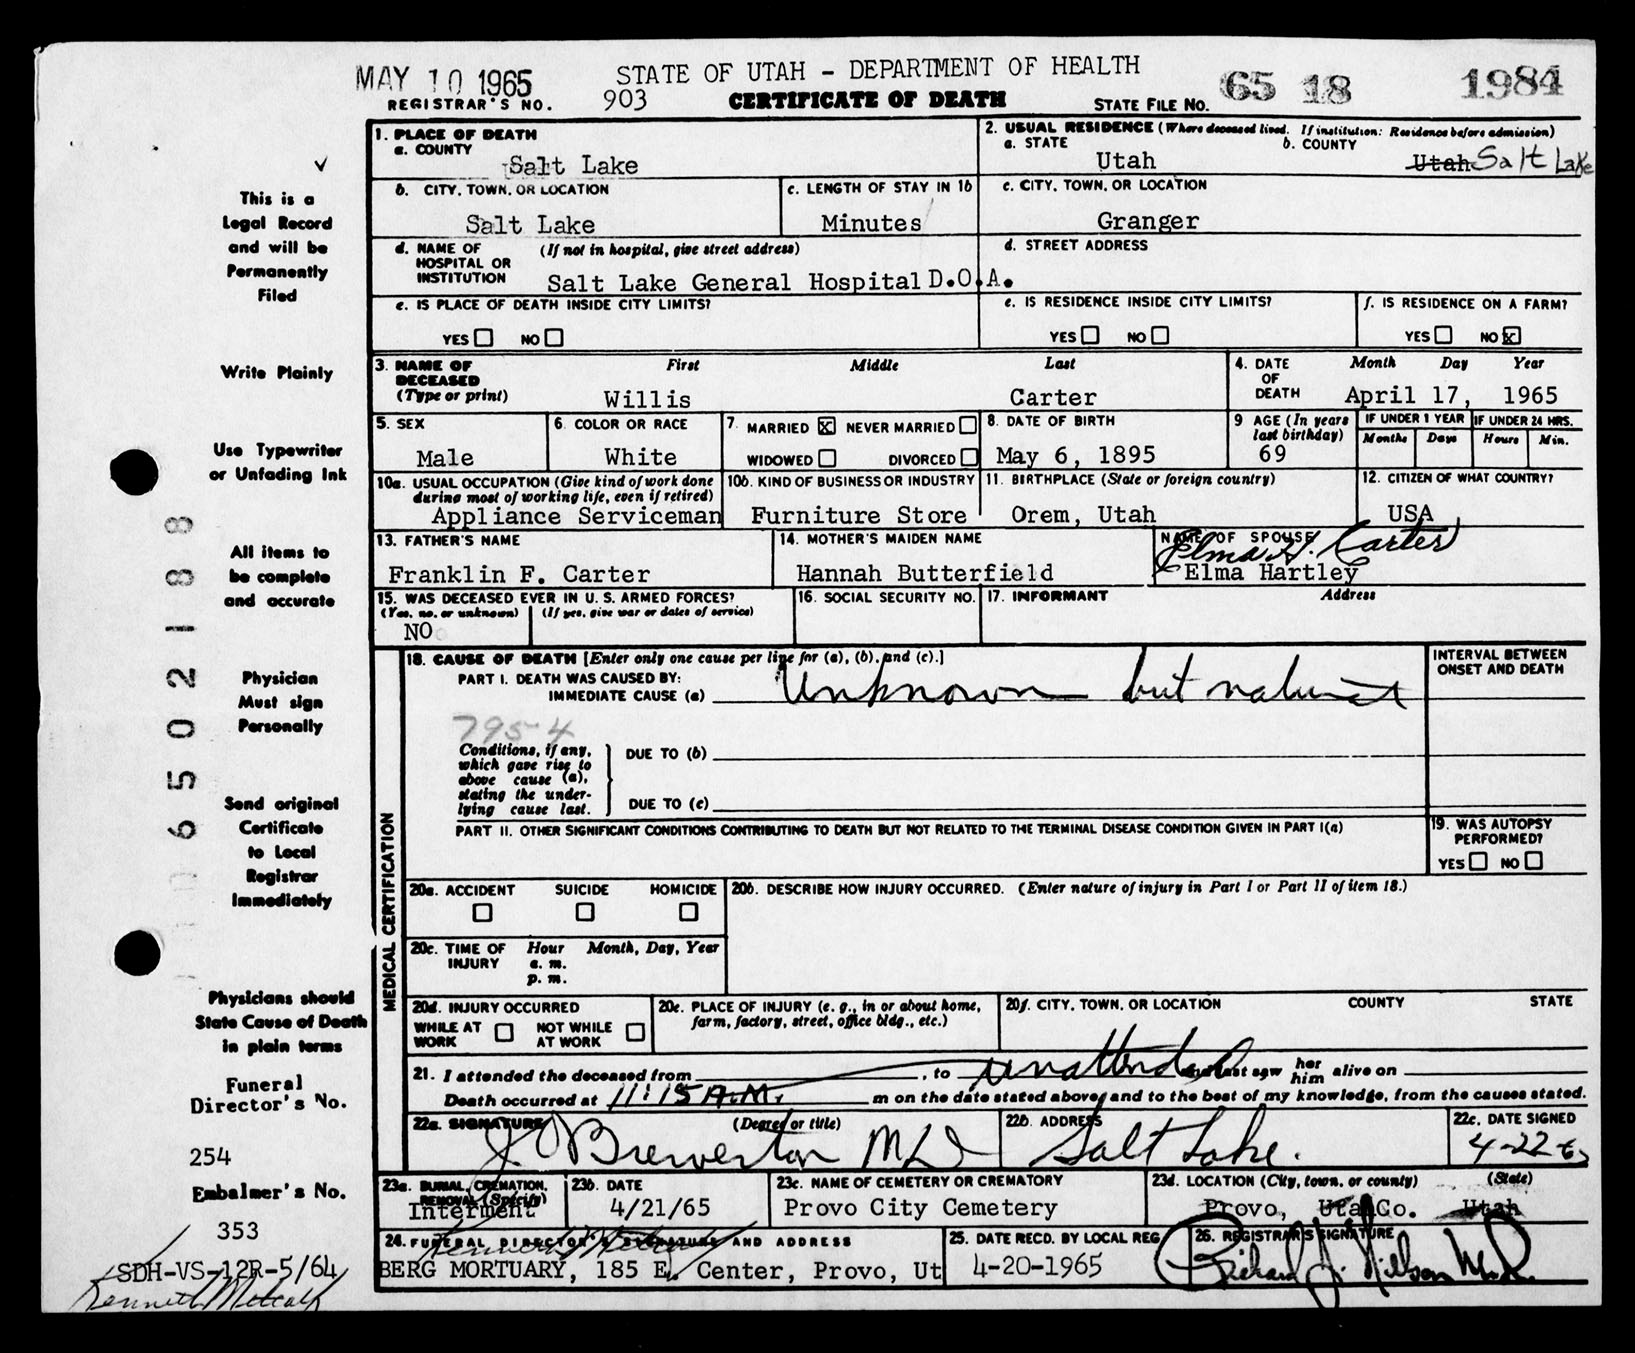 MAY 10 1965
STATE OF UTAH - DEPARTMENT OF HEALTH
65 18 1984
REGISTRAR'S NO. 903 CERTIFICATE OF DEATH STATE FILE NO.
1. PLACE OF DEATH
a. COUNTY
Salt Lake
2. USUAL RESIDENCE (Where deceased lived. If institution: Residence before admission)
a. STATE b. COUNTY
Utah Utah Salt Lake
b. CITY, TOWN, OR LOCATION
Salt Lake
c. LENGTH OF STAY IN 1b
Minutes
c. CITY, TOWN, OR LOCATION
Granger
d. NAME OF HOSPITAL OR INSTITUTION (If not in hospital, give street address)
Salt Lake General Hospital D.O.A.
d. STREET ADDRESS
e. IS PLACE OF DEATH INSIDE CITY LIMITS?
YES NO
e. IS RESIDENCE INSIDE CITY LIMITS?
YES NO
f. IS RESIDENCE ON A FARM?
YES NO X
3. NAME OF DECEASED (Type or print)
First Middle Last
Willis Carter
4. DATE OF DEATH
Month Day Year
April 17, 1965
5. SEX
Male
6. COLOR OR RACE
White
7. MARRIED X NEVER MARRIED
WIDOWED DIVORCED
8. DATE OF BIRTH
May 6, 1895
9 AGE (In years last birthday)
69
IF UNDER 1 YEAR
Months Days
IF UNDER 24 HRS.
Hours Min.
10a. USUAL OCCUPATION (Give kind of work done
during most of working life, even if retired)
Appliance Serviceman
10b. KIND OF BUSINESS OR INDUSTRY
Furniture Store
11. BIRTHPLACE (State or foreign country)
Orem, Utah
12. CITIZEN OF WHAT COUNTRY?
USA
13. FATHER'S NAME
Franklin F. Carter
14. MOTHER'S MAIDEN NAME
Hannah Butterfield
NAME OF SPOUSE
Elma H. Carter
Elma Hartley
15. WAS DECEASED EVER IN U. S. ARMED FORCES?
(Yes, no, or unknown) (If yes, give war or dates of service)
NO
16. SOCIAL SECURITY NO.
17. INFORMANT Address
MEDICAL CERTIFICATION
18. CAUSE OF DEATH [Enter only one cause per line for (a), (b), and (c).]
PART I. DEATH WAS CAUSED BY:
IMMEDIATE CAUSE (a) Unknown but natural
INTERVAL BETWEEN
ONSET AND DEATH
795 4
Conditions, if any,
which gave rise to
above cause (a),
stating the under-
lying cause last.
DUE TO (b)
DUE TO (c)
PART II. OTHER SIGNIFICANT CONDITIONS CONTRIBUTING TO DEATH BUT NOT RELATED TO THE TERMINAL DISEASE CONDITION GIVEN IN PART I(a)
19. WAS AUTOPSY
PERFORMED?
YES NO
20a. ACCIDENT SUICIDE HOMICIDE
20b. DESCRIBE HOW INJURY OCCURRED. (Enter nature of injury in Part I or Part II of item 18.)
20c. TIME OF INJURY
Hour Month, Day, Year
a. m.
p. m.
20d. INJURY OCCURRED
WHILE AT WORK NOT WHILE AT WORK
20e. PLACE OF INJURY (e. g., in or about home,
farm, factory, street, office bldg., etc.)
20f. CITY, TOWN, OR LOCATION COUNTY STATE
21. I attended the deceased from , to unattended and last saw her him alive on
Death occurred at 11:15 A.M. m on the date stated above, and to the best of my knowledge, from the causes stated.
22a. SIGNATURE (Degree or title)
J Brewerton MD
22b. ADDRESS
Salt Lake.
22c. DATE SIGNED
4-22-65
23a. BURIAL, CREMATION,
REMOVAL (Specify)
Interment
23b. DATE
4/21/65
23c. NAME OF CEMETERY OR CREMATORY
Provo City Cemetery
23d. LOCATION (City, town, or county) (State)
Provo, Utah Co. Utah
24. FUNERAL DIRECTOR'S SIGNATURE AND ADDRESS
Kenneth Metcalf
BERG MORTUARY, 185 E. Center, Provo, Ut
25. DATE RECD. BY LOCAL REG.
4-20-1965
26. REGISTRAR'S SIGNATURE
This is a
Legal Record
and will be
Permanently
Filed
Write Plainly
Use Typewriter
or Unfading Ink
All items to
be complete
and accurate
Physician
Must sign
Personally
Send original
Certificate
to Local
Registrar
Immediately
Physicians should
State Cause of Death
in plain terms
Funeral
Director's No.
254
Embalmer's No.
353
SDH-VS-12R-5/64
Kenneth Metcalf
6502188